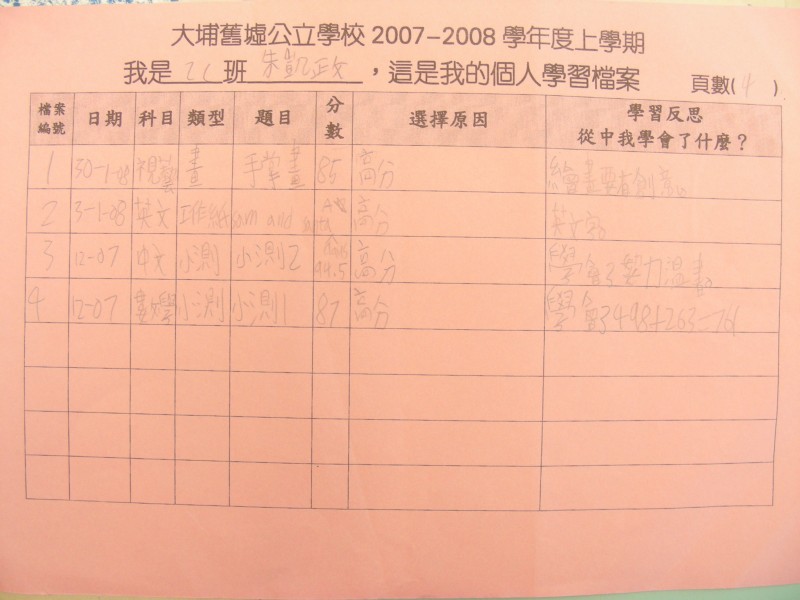 大埔舊墟公立學校 2007-2008 學年度上學期
我是 2C 班 朱凱政 ，這是我的個人學習檔案 頁數( 4 )
檔案編號 日期 科目 類型 題目 分數 選擇原因 學習反思 從中我學會了什麼？
1 30-1-08 視藝 畫 手掌畫 85 高分 繪畫要有創意。
2 3-1-08 英文 工作紙 am and 高分 英文字。
3 12-07 中文 小測 小測2 99.5 高分 學會了努力溫書。
4 12-07 數學 小測 小測1 87 高分 學會了498+263=761